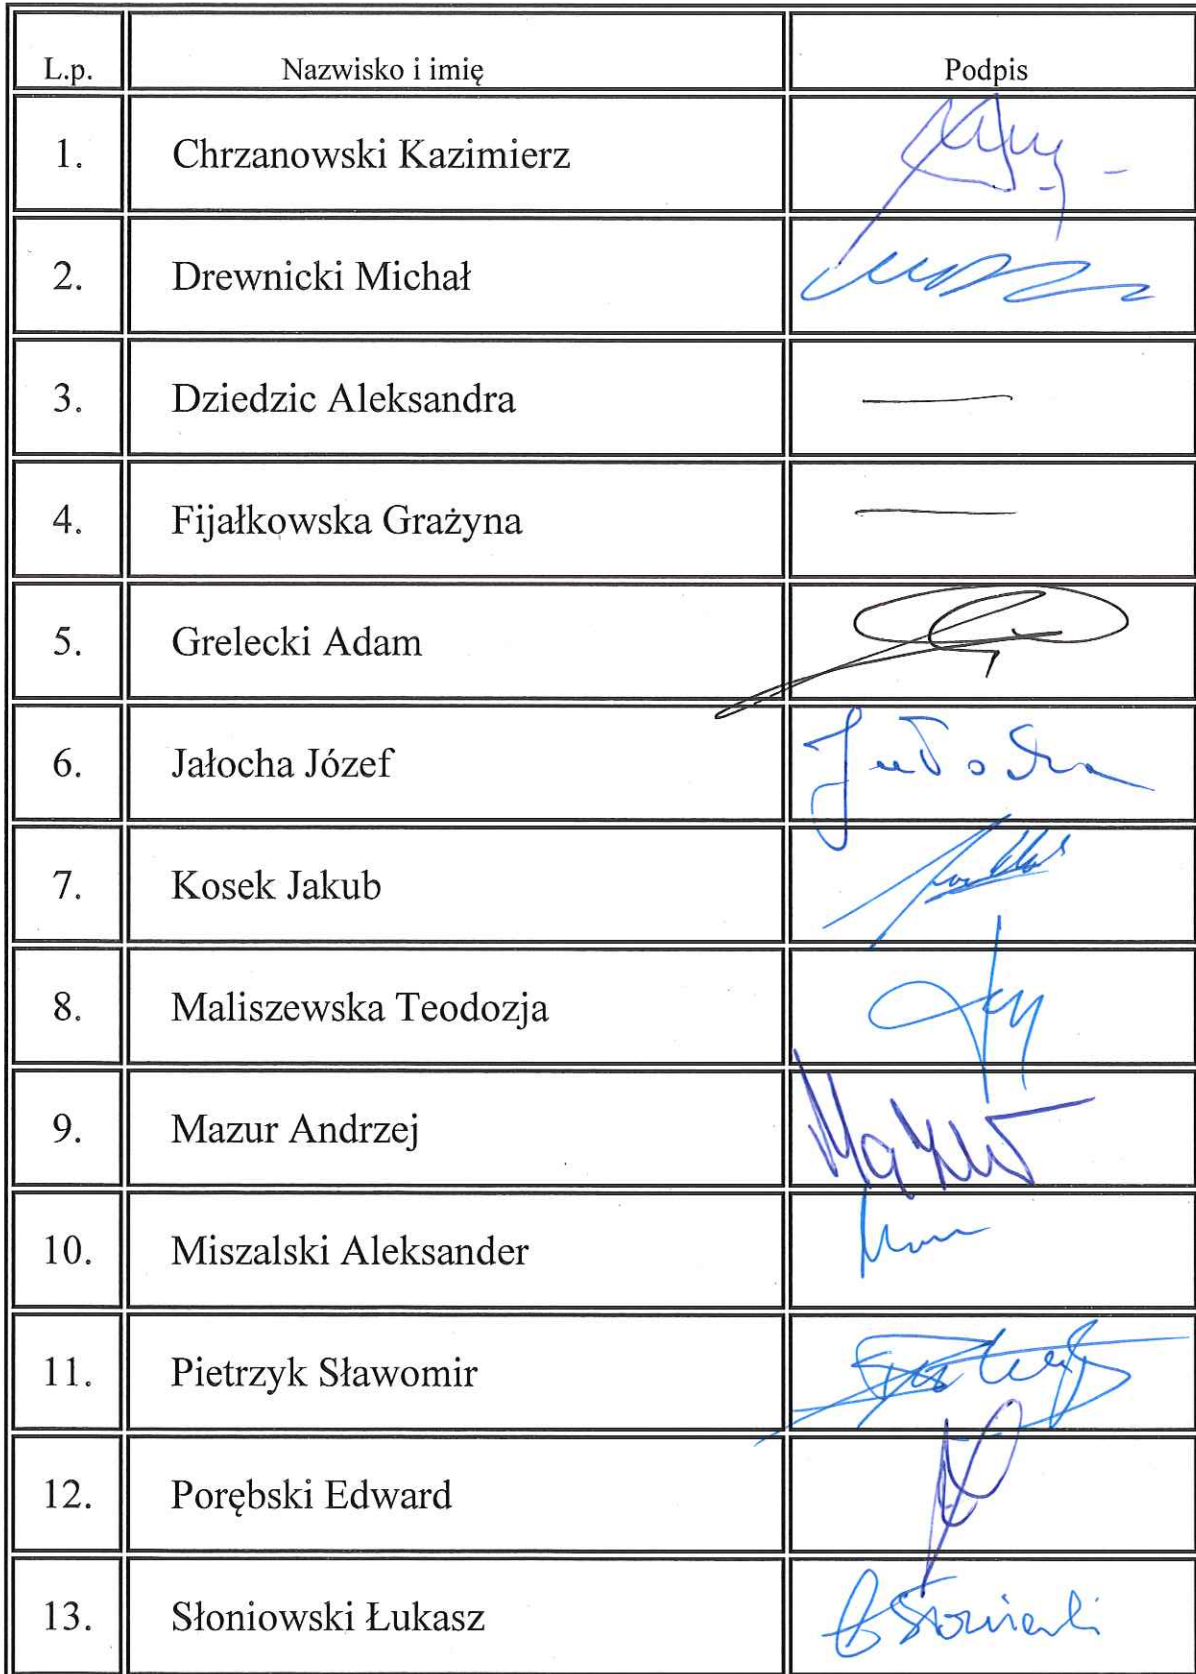 L.p. Nazwisko i imię Podpis
1. Chrzanowski Kazimierz
2. Drewnicki Michał
3. Dziedzic Aleksandra —
4. Fijałkowska Grażyna —
5. Grelecki Adam
6. Jałocha Józef Jałocha
7. Kosek Jakub
8. Maliszewska Teodozja
9. Mazur Andrzej Mazur
10. Miszalski Aleksander
11. Pietrzyk Sławomir
12. Porębski Edward
13. Słoniowski Łukasz